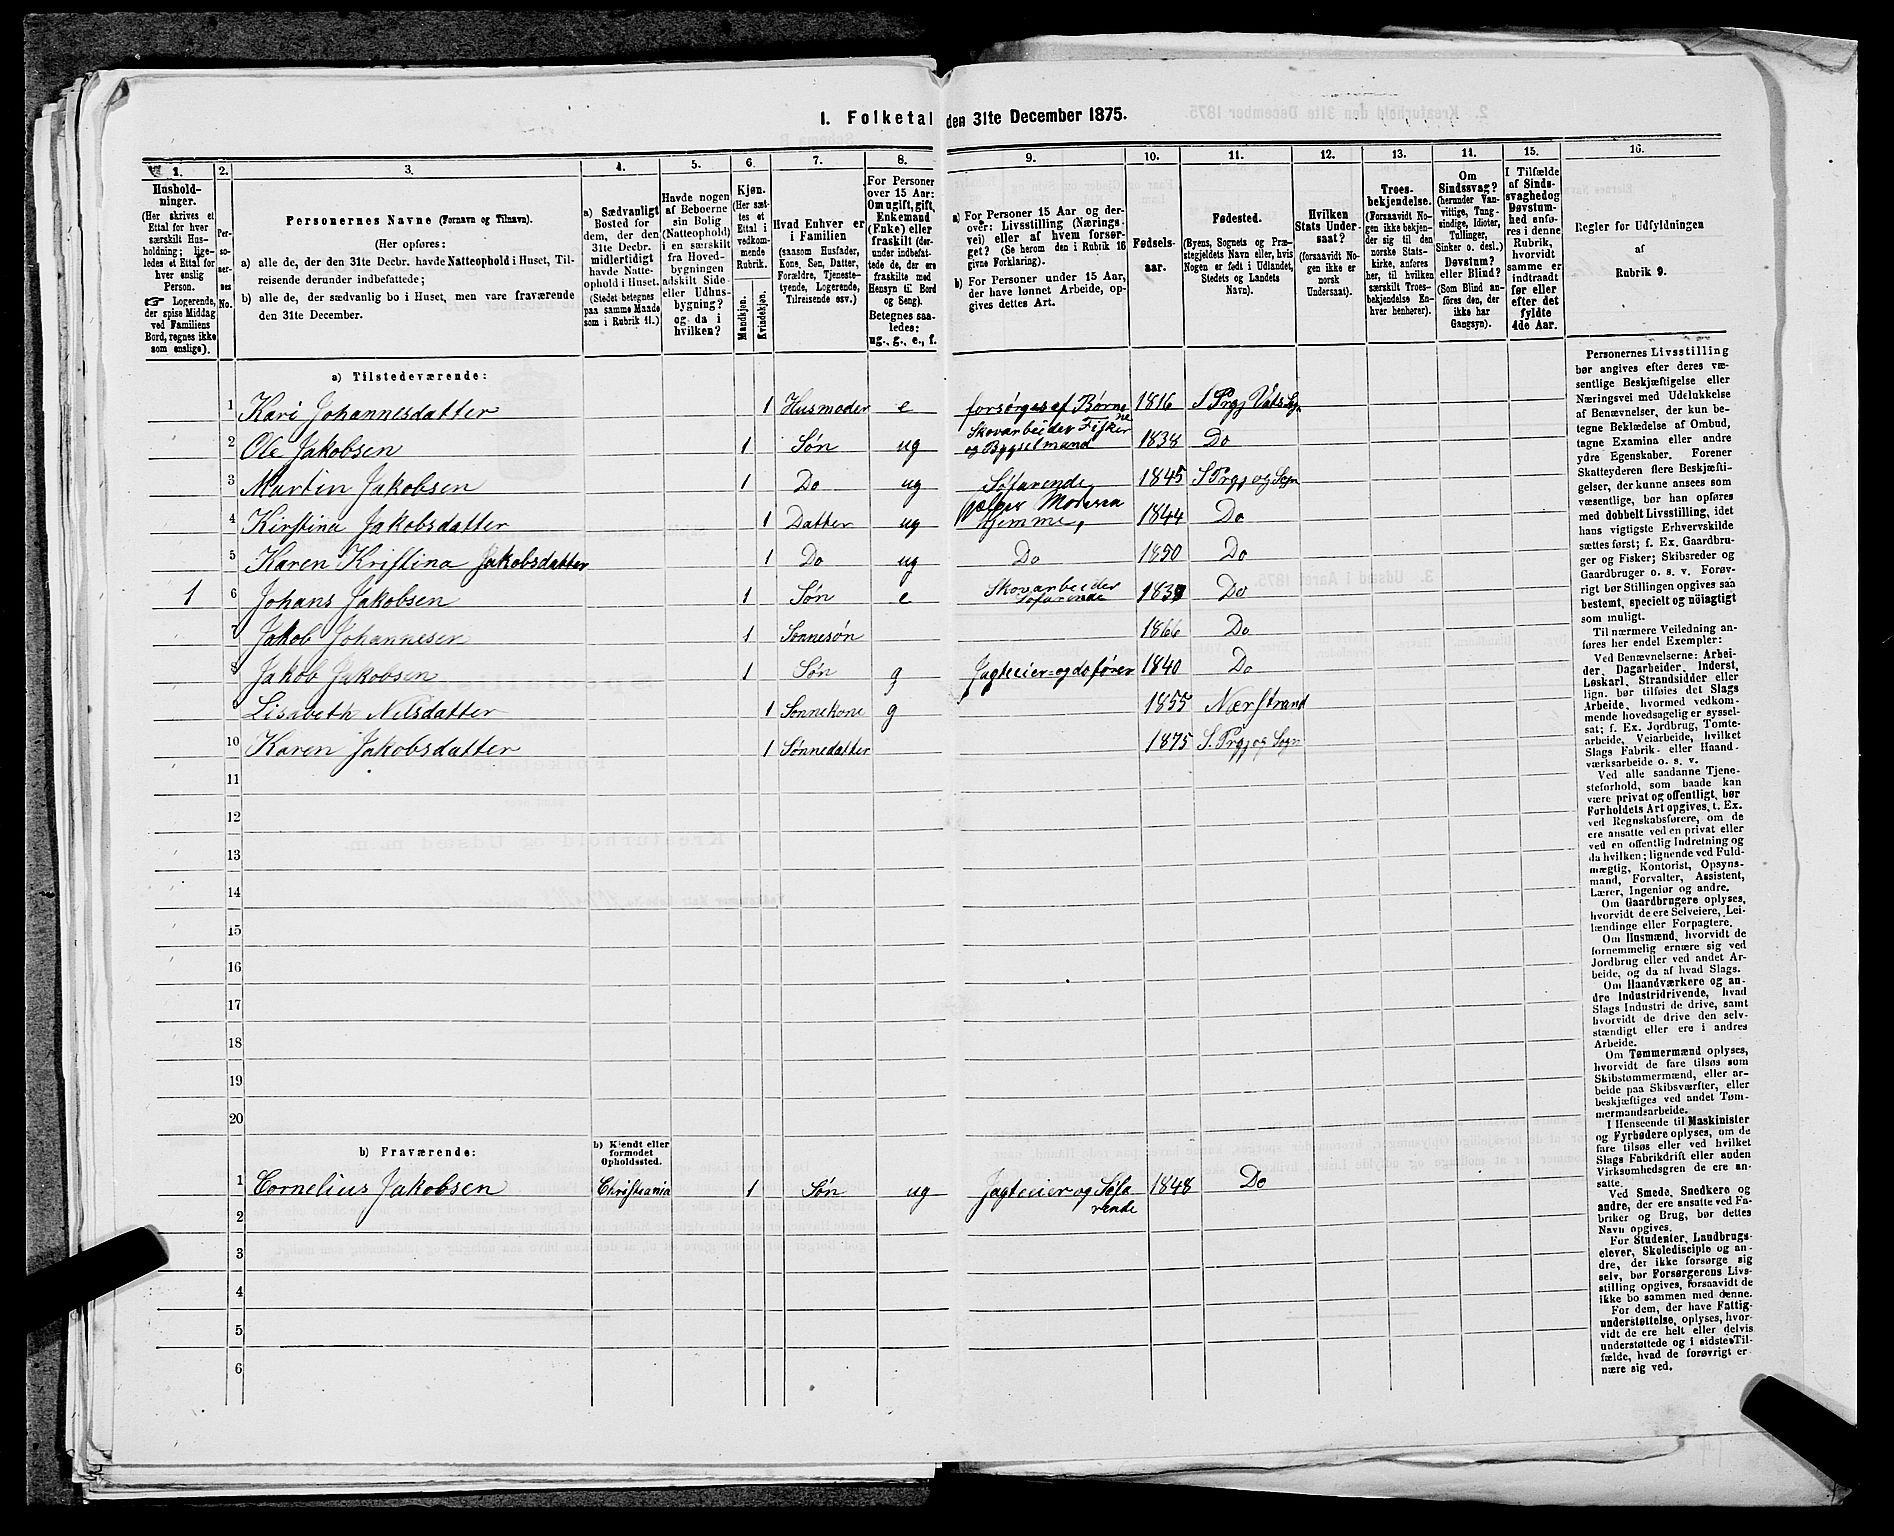 1. Folketal den 31te December 1875.
1.
Hushold-
ninger.
(Her skrives et
Ettal for hver
særskilt Hus-
holdning; lige-
ledes et Ettal for
hver enslig
Person.
☞ Logerende,
der spise Middag
ved Familiens
Bord, regnes ikke
som enslige).
2.
Per-
so-
ner-
nes
No.
3.
Personernes Navne (Fornavn og Tilnavn).
(Her opføres:
a) alle de, der den 31te Decbr. havde Natteophold i Huset, Til-
reisende derunder indbefattede;
b) alle de, der sædvanlig bo i Huset, men vare fraværende
den 31te December.
4.
a) Sædvanligt
Bosted for
dem, der den
31te Decbr.
midlertidigt
havde Natte-
ophold i Huset.
(Stedet betegnes
paa samme Maade
som i Rubrik 11.)
5.
Havde nogen
af Beboerne
sin Bolig
(Natteophold)
i en særskilt
fra Hoved-
bygningen
adskilt Side-
eller Udhus-
bygning?
og da i
hvilken?
6.
Kjøn.
(Her sæt-
tes et
Ettal i
vedkom-
mende
Rubrik.
Mandkjøn.
Kvindekjøn.
7.
Hvad Enhver er
i Familien
(saasom Husfader,
Kone, Søn, Datter,
Forældre, Tjeneste-
tyende, Logerende,
Tilreisende osv.)
8.
For Personer
over 15 Aar:
Om ugift, gift,
Enkemand
(Enke) eller
fraskilt (der-
under indbefat-
tede de, der ere
fraskilte med
Hensyn til Bord
og Seng).
Betegnes saa-
ledes:
ug., g., e., f.
9.
a) For Personer 15 Aar og der-
over: Livsstilling (Nærings-
vei) eller af hvem forsør-
get? (Se herom den i Rubrik 16
givne Forklaring).
b) For Personer under 15 Aar,
der have lønnet Arbeide, op-
gives dettes Art.
10.
Fødsels-
aar.
11.
Fødested.
(Byens, Sognets og Præ-
stegjeldets Navn eller, hvis
Nogen er født i Udlandet,
Stedets og Landets
Navn).
12.
Hvilken
Stats Under-
saat?
(forsaavidt No-
gen ikke er
norsk
Undersaat).
13.
Troes-
bekjendelse.
(Forsaavidt No-
gen ikke bekjen-
der sig til den
norske Stats-
kirke, anføres
her, til hvilken
særskilt Troes-
bekjendelse En-
hver henhører).
14.
Om
Sindssvag?
(herunder Van-
vittige, Tung-
sindige, Idioter,
Tullinger,
Sinker o. desl.)
Døvstum?
eller Blind?
(Som Blind an-
føres den, der
ikke har
Gangsyn).
15.
I Tilfælde
af Sinds-
svaghed og
Døvstum-
hed anfø-
res i denne
Rubrik,
hvorvidt
samme er
indtraadt
før eller
efter det
fyldte
4de Aar.
16.
Regler for Udfyldningen
af
Rubrik 9.
a) Tilstedeværende:
1 Kari Johannesdatter 1 Husmoder e forsørges af Børnene 1816 S Prgj Vats Sogn
2 Ole Jakobsen 1 Søn ug Skovarbeider Fisker og Byggelmand 1838 Do
3 Martin Jakobsen 1 Do ug Søfarende 1845 S Prgj og Sogn
4 Kirstina Jakobsdatter 1 Datter ug hjemme, 1844 Do
5 Karen Kristina Jakobsdatter 1 Do ug Do 1850 Do
1 6 Johans Jakobsen 1 Søn e Skovarbeider Søfarende Do
7 Jakob Johannesen 1 Sønnesøn 1866 Do
8 Jakob Jakobsen 1 Søn g Jagteeier og do fører 1840 Do
Lisabeth Nilsdatter 1 Sønnekone g 1855 Nærstrand
10 Karen Jakobsdatter 1 Sønnedatter 1875 S. Prgj og Sogn
11
12
13
14
15
16
17
18
19
20
b) Fraværende:
b) Kjendt eller
formodet
Opholdssted.
1 Cornelius Jakobsen Christiania 1 Søn ug Jagteeier og Søfarende 1848 Do
2
3
4
5
6
Personernes Livsstilling
bør angives efter deres væ-
sentlige Beskjæftigelse eller
Næringsvei med Udelukkelse
af Benævnelser, der kun be-
tegne Beklædelse af Ombud,
tagne Examina eller andre
ydre Egenskaber. Forener
Skatteyderen flere Beskjæfti-
gelser, der kunne ansees som
væsentlige, bør han opføres
med dobbelt Livsstilling, idet
hans vigtigste Erhvervskilde
sættes først; f. Ex. Gaardbru-
ger og Fisker; Skibsreder og
Gaardbruger o. s. v. Forøv-
rigt bør Stillingen opgives saa
bestemt, specielt og nöiagtigt
som muligt.
Til nærmere Veiledning an-
føres her endel Exempler:
Ved Benævnelserne: Arbei-
der, Dagarbeider, Inderst,
Løskarl, Strandsidder eller
lign. bør tilføies det Slags
Arbeide, hvormed vedkom-
mende hovedsagelig er syssel-
sat; f. Ex. Jordbrug, Tomte-
arbeide, Veiarbeide, hvilket
Slags Fabrik- eller Haand-
værksarbeide o. s. v.
Ved alle saadanne Tjene-
steforhold, som baade kan
være privat og offentligt, bør
Forholdets Art opgives, t. Ex.
ved Regnskabsførere, om de
ere ansatte ved en privat eller
ved en offentlig Indretning og
da hvilken; lignende ved Fuld-
mægtig, Kontorist, Opsyns-
mand, Forvalter, Assistent,
Lærer, Ingeniør og andre.
Om Gaardbrugere oplyses,
hvorvidt de ere Selveiere, Lei-
lændinge eller Forpagtere.
Om Husmænd, hvorvidt de
fornemmelig ernære sig ved
Jordbrug eller ved andet Ar-
beide, og da af hvad Slags.
Om Haandværkere og an-
dre Industridrivende, hvad
Slags Industri de drive, samt
hvorvidt de drive den selv-
stændigt eller ere i andres
Arbeide.
Om Tømmermænd oplyses,
hvorvidt de fare tilsøs som
Skibstømmermænd, eller ar-
beide paa Skibsværfter, eller
beskjæftiges ved andet Tøm-
mermandsarbeide.
I Henseende til Maskinister
og Fyrbødere oplyses, om de
fare tilsøs eller ved hvilket
Slags Fabrikdrift eller anden
Virksomhedsgren de ere an-
satte.
Ved Smede, Snedkere og
andre, der ere ansatte ved Fa-
briker og Brug, bør dettes
Navn opgives.
For Studenter, Landbrugs-
elever, Skoledisciple og an-
dre, der ikke forsørge sig
selv, bør Forsørgerens Livs-
stilling opgives, forsaavidt de
ikke bo sammen med denne.
For dem, der have Fattig-
understøttelse, oplyses, hvor-
vidt de ere helt eller delvis
understøttede og i sidste Til-
fælde, hvad de forøvrigt er-
nære sig ved.